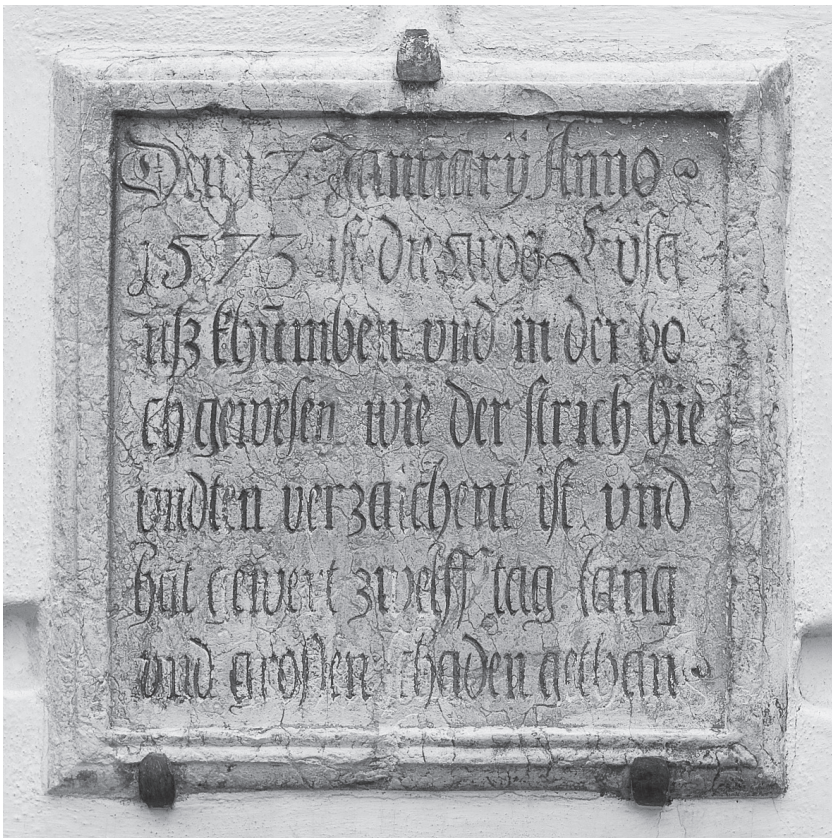 Den 12 Januarÿ Anno
1573 ist die gros Eÿsa
üß khumben vnd in der ho
ch gewesen wie der strich hie
vndten verzaichent ist vnd
hat gewert zwelff tag lang
vnd großen schaden gethan